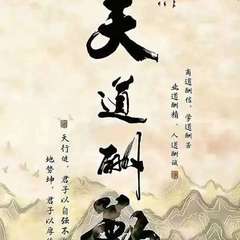 商道酬信，学道酬苦
业道酬精，人道酬诚
天道酬勤
天行健，君子以自强不
地势坤，君子以厚